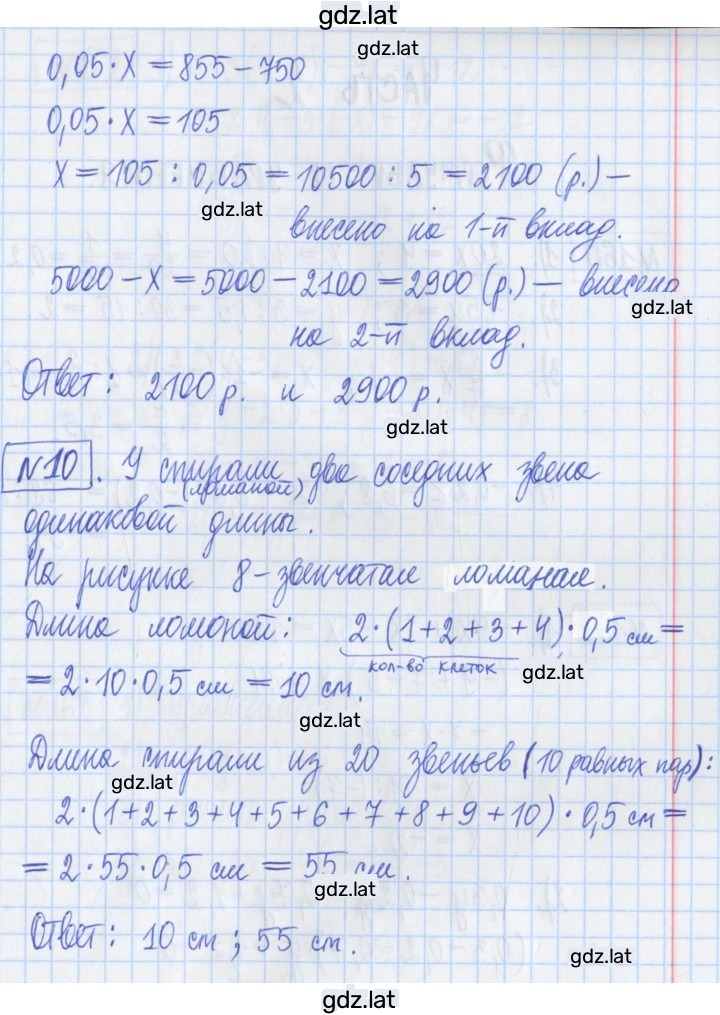 gdz.lat
gdz.lat
0,05·x=855−750
0,05·x=105
x=105:0,05=10500:5=2100 (р.)—
gdz.lat
внесено на 1-й вклад.
5000−x=5000−2100=2900 (р.)— внесено
gdz.lat
на 2-й вклад.
Ответ: 2100 р. и 2900 р.
gdz.lat
№10. У спирали (ломаной) два соседних звена
одинаковой длины.
На рисунке 8-звенчатая ломаная.
Длина ломаной: 2·(1+2+3+4)·0,5 см=
кол-во клеток
gdz.lat
=2·10·0,5 см=10 см.
gdz.lat
Длина спирали из 20 звеньев (10 равных пар):
gdz.lat
2·(1+2+3+4+5+6+7+8+9+10)·0,5 см=
=2·55·0,5 см=55 см.
gdz.lat
Ответ: 10 см; 55 см.
gdz.lat
gdz.lat